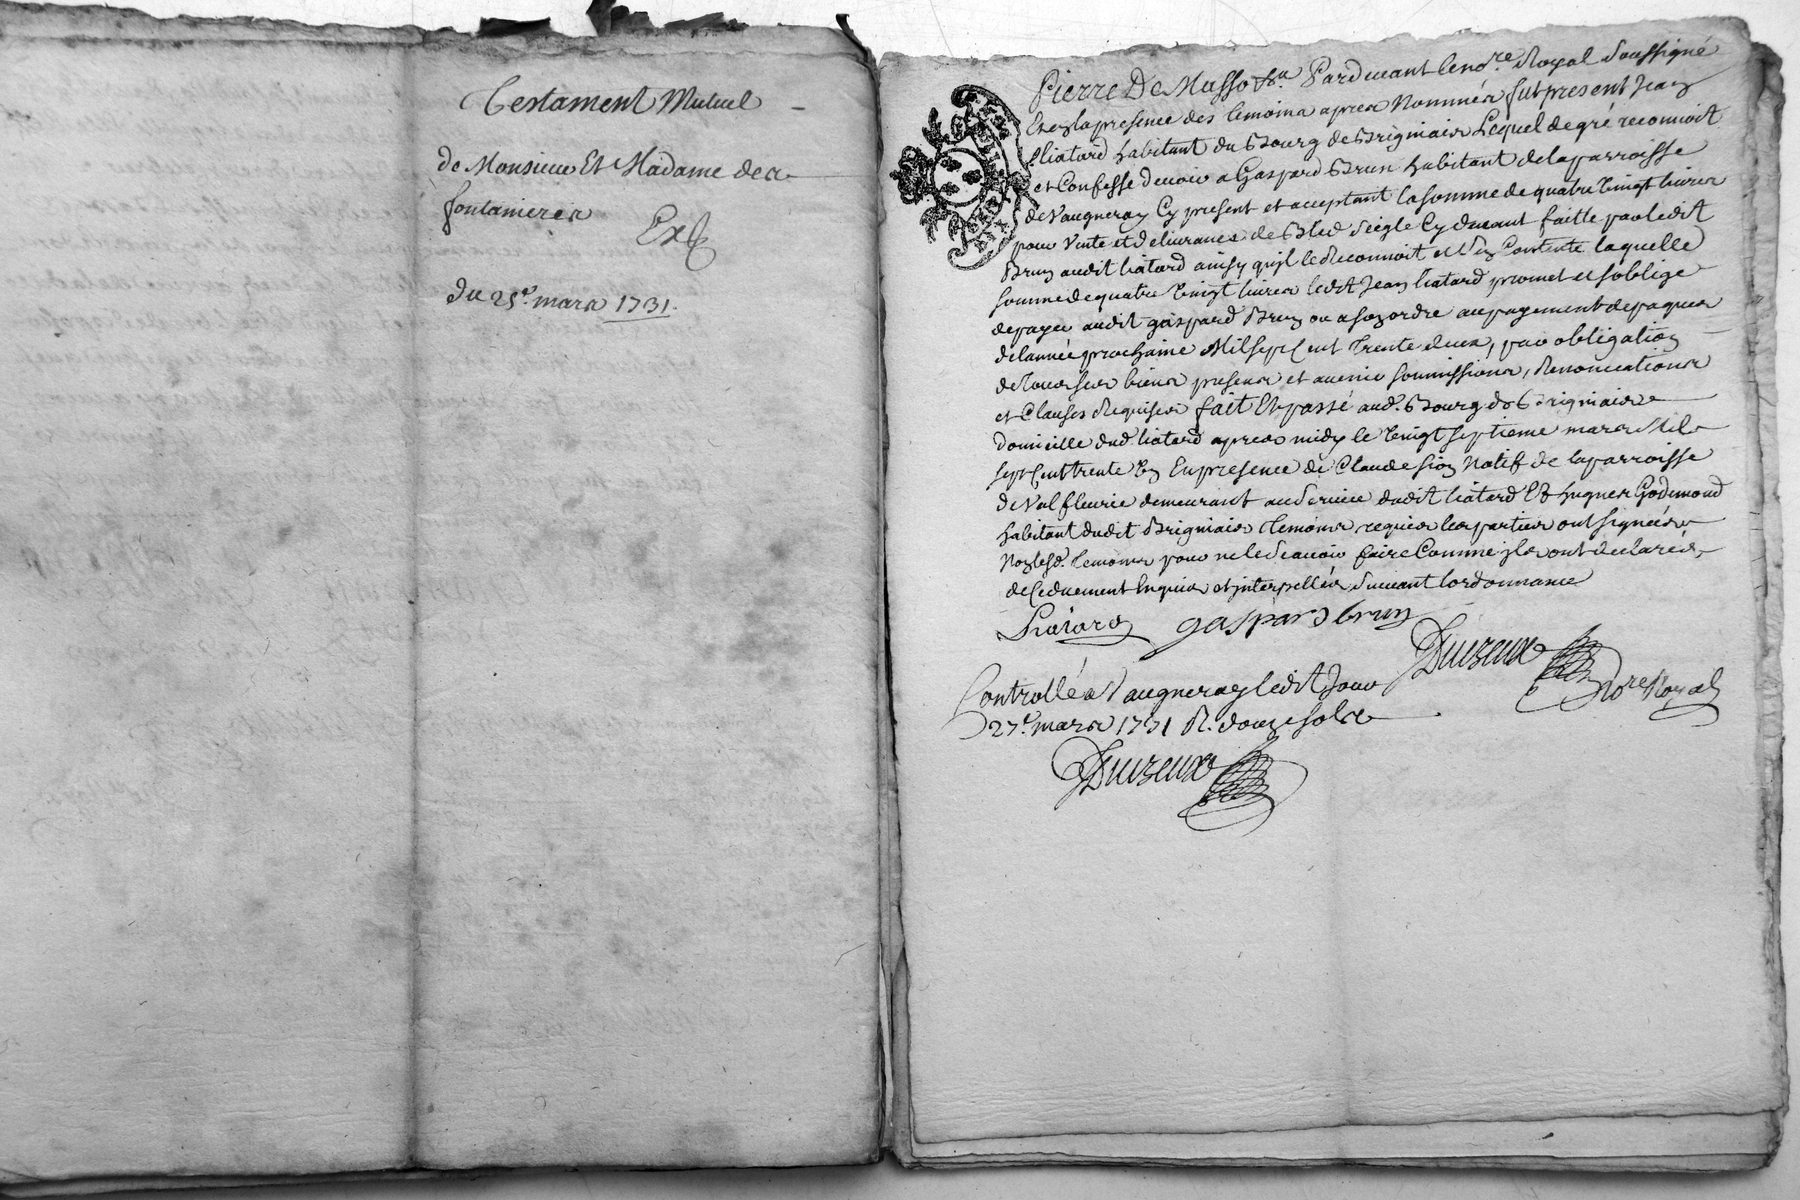 Testament Mutuel
de Monsieur Et Madame des
fontanieres Exp
du 25e. mars 1731.
Pierre De Masso &a. Pardevant le no.re Royal Soussigné
Et en la presence des temoins apres Nommés fut present Jean
liatard habitant du Bourg de Brignais Lequel de gré reconnoit
et Confesse devoir a Gaspard Brun habitant de la parroisse
de Vaugneray Cy present et acceptant la somme de quatre vingt livres
pour Vente et delivrance de Bled Seigle Cy devant faitte par ledit
Brun audit liatard ainsy qu'il le Reconnoit et s'en Contente laquelle
somme de quatre vingt livres ledit Jean liatard promet et s'oblige
de payer audit gaspard Brun ou a son ordre au payement de paques
de l'année prochaine Mil sept Cent trente deux, par obligation
de tous ses biens presens et avenir soumissions, Renonciations
et Clauses Requises fait Et passé aud. Bourg de Brignais
domicille dud liatard apres midy le vingt septieme mars Mil
sept Cent trente Un En presence de Claude sion Natif de la parroisse
de Val fleurie demeurant au Service dudit liatard Et hugues Godimond
habitant dudit Brignais temoins requis les parties ont signées
Non lesd. temoins pour ne le Scavoir faire Comme ils ont declarés
de Ce duement Enquis et interpellés Suivant l'ordonnance
Liatard gaspard brun
Duizeux
No.re Royal
Controllé a Vaugneray ledit Jour
27e. mars 1731 R. douze sols
Duizeux